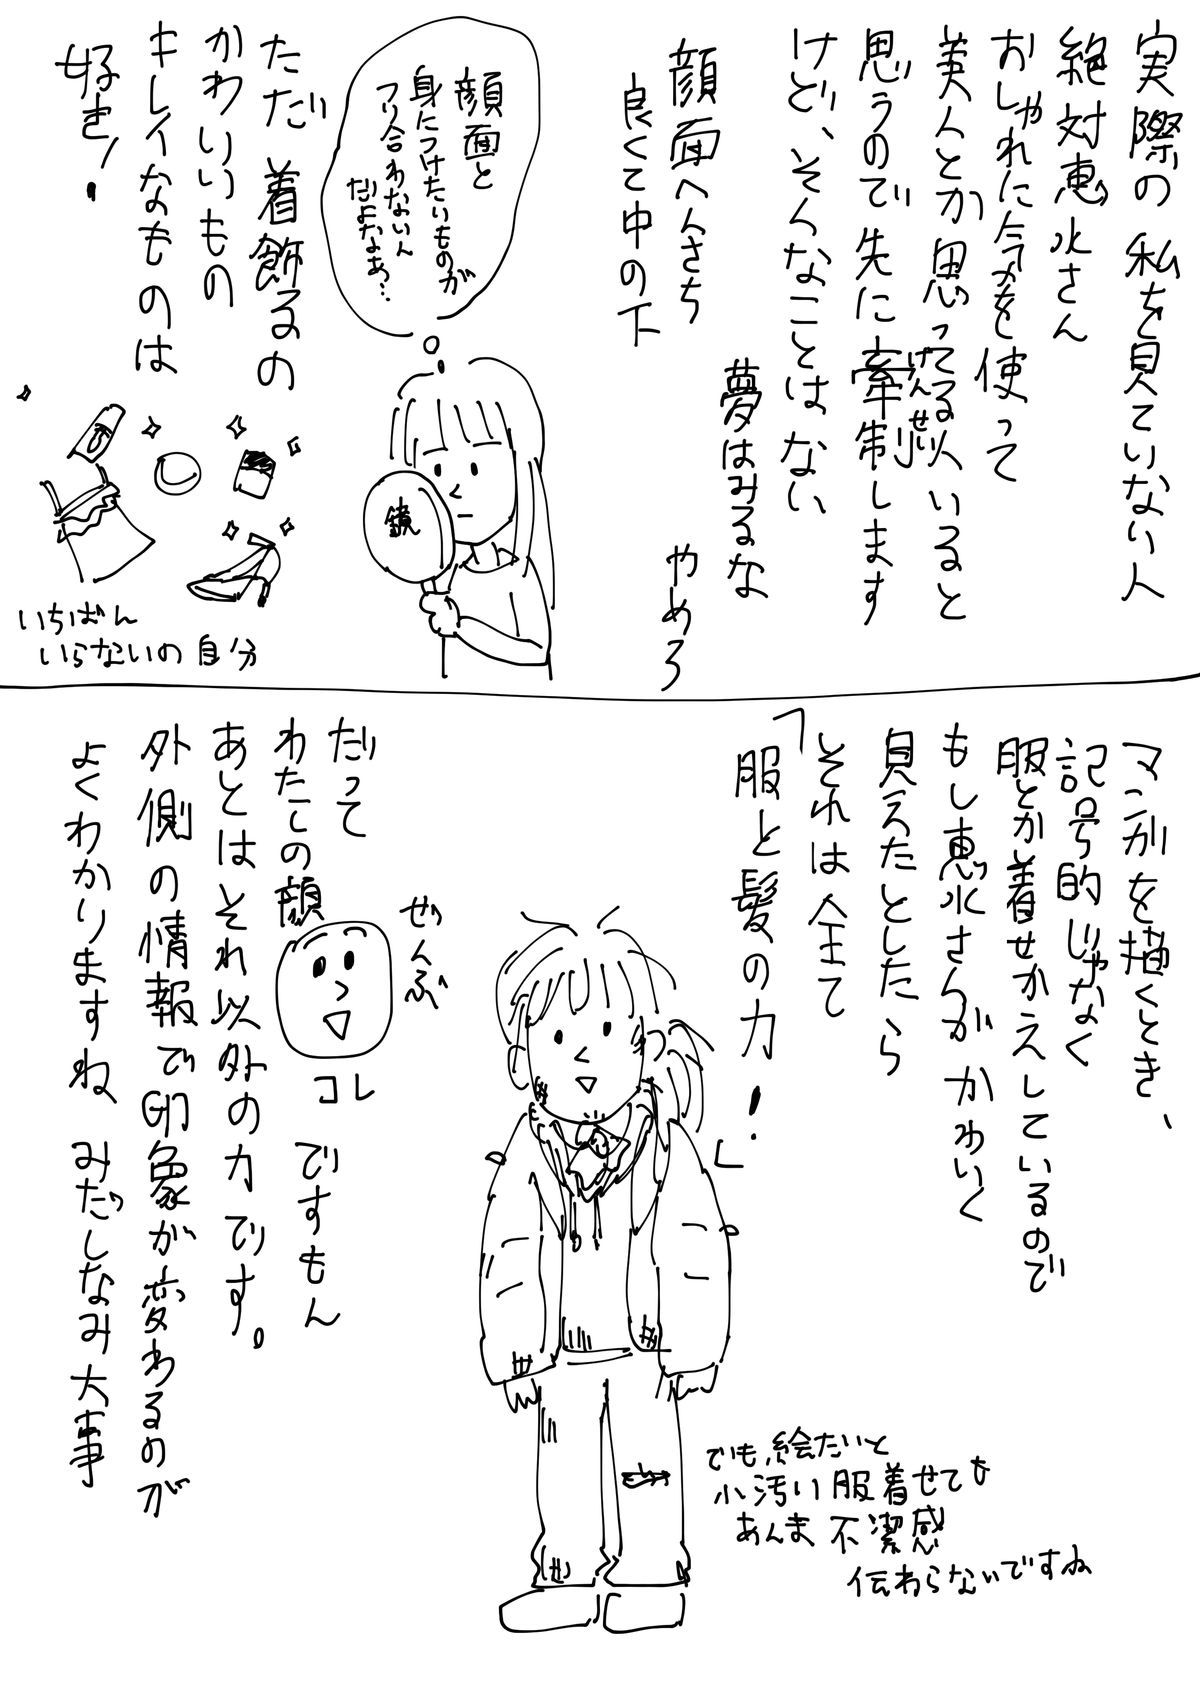 実際の私を見ていない人
絶対恵水さん
おしゃれに今を使って
美人とか思ってる以いると
思うので先に牽制します
けんせい
けど、そんなことはない
夢はみるな
やめろ
顔面へんさち
良くて中の下
顔面と
身につけたいものが
フリ合わないん
だよなぁ…
鏡
ただ着飾るの
かわいいもの
キレイなものは
好き!
いちばん
いらないの自分
マンガを描くとき、
記号的じゃなく
服とか着せかえしているので
もし恵水さんがかわいく
見えたとしたら
「それは全て
服と髪の力!」
ぜんぶ
だって
わたしの顔
コレ
ですもん
あとはそれ以外の力です。
外側の情報で印象が変わるのが
よくわかりますね みだしなみ大事
でも、絵だいと
小汚い服着せても
あんま不潔感
伝わらないですね